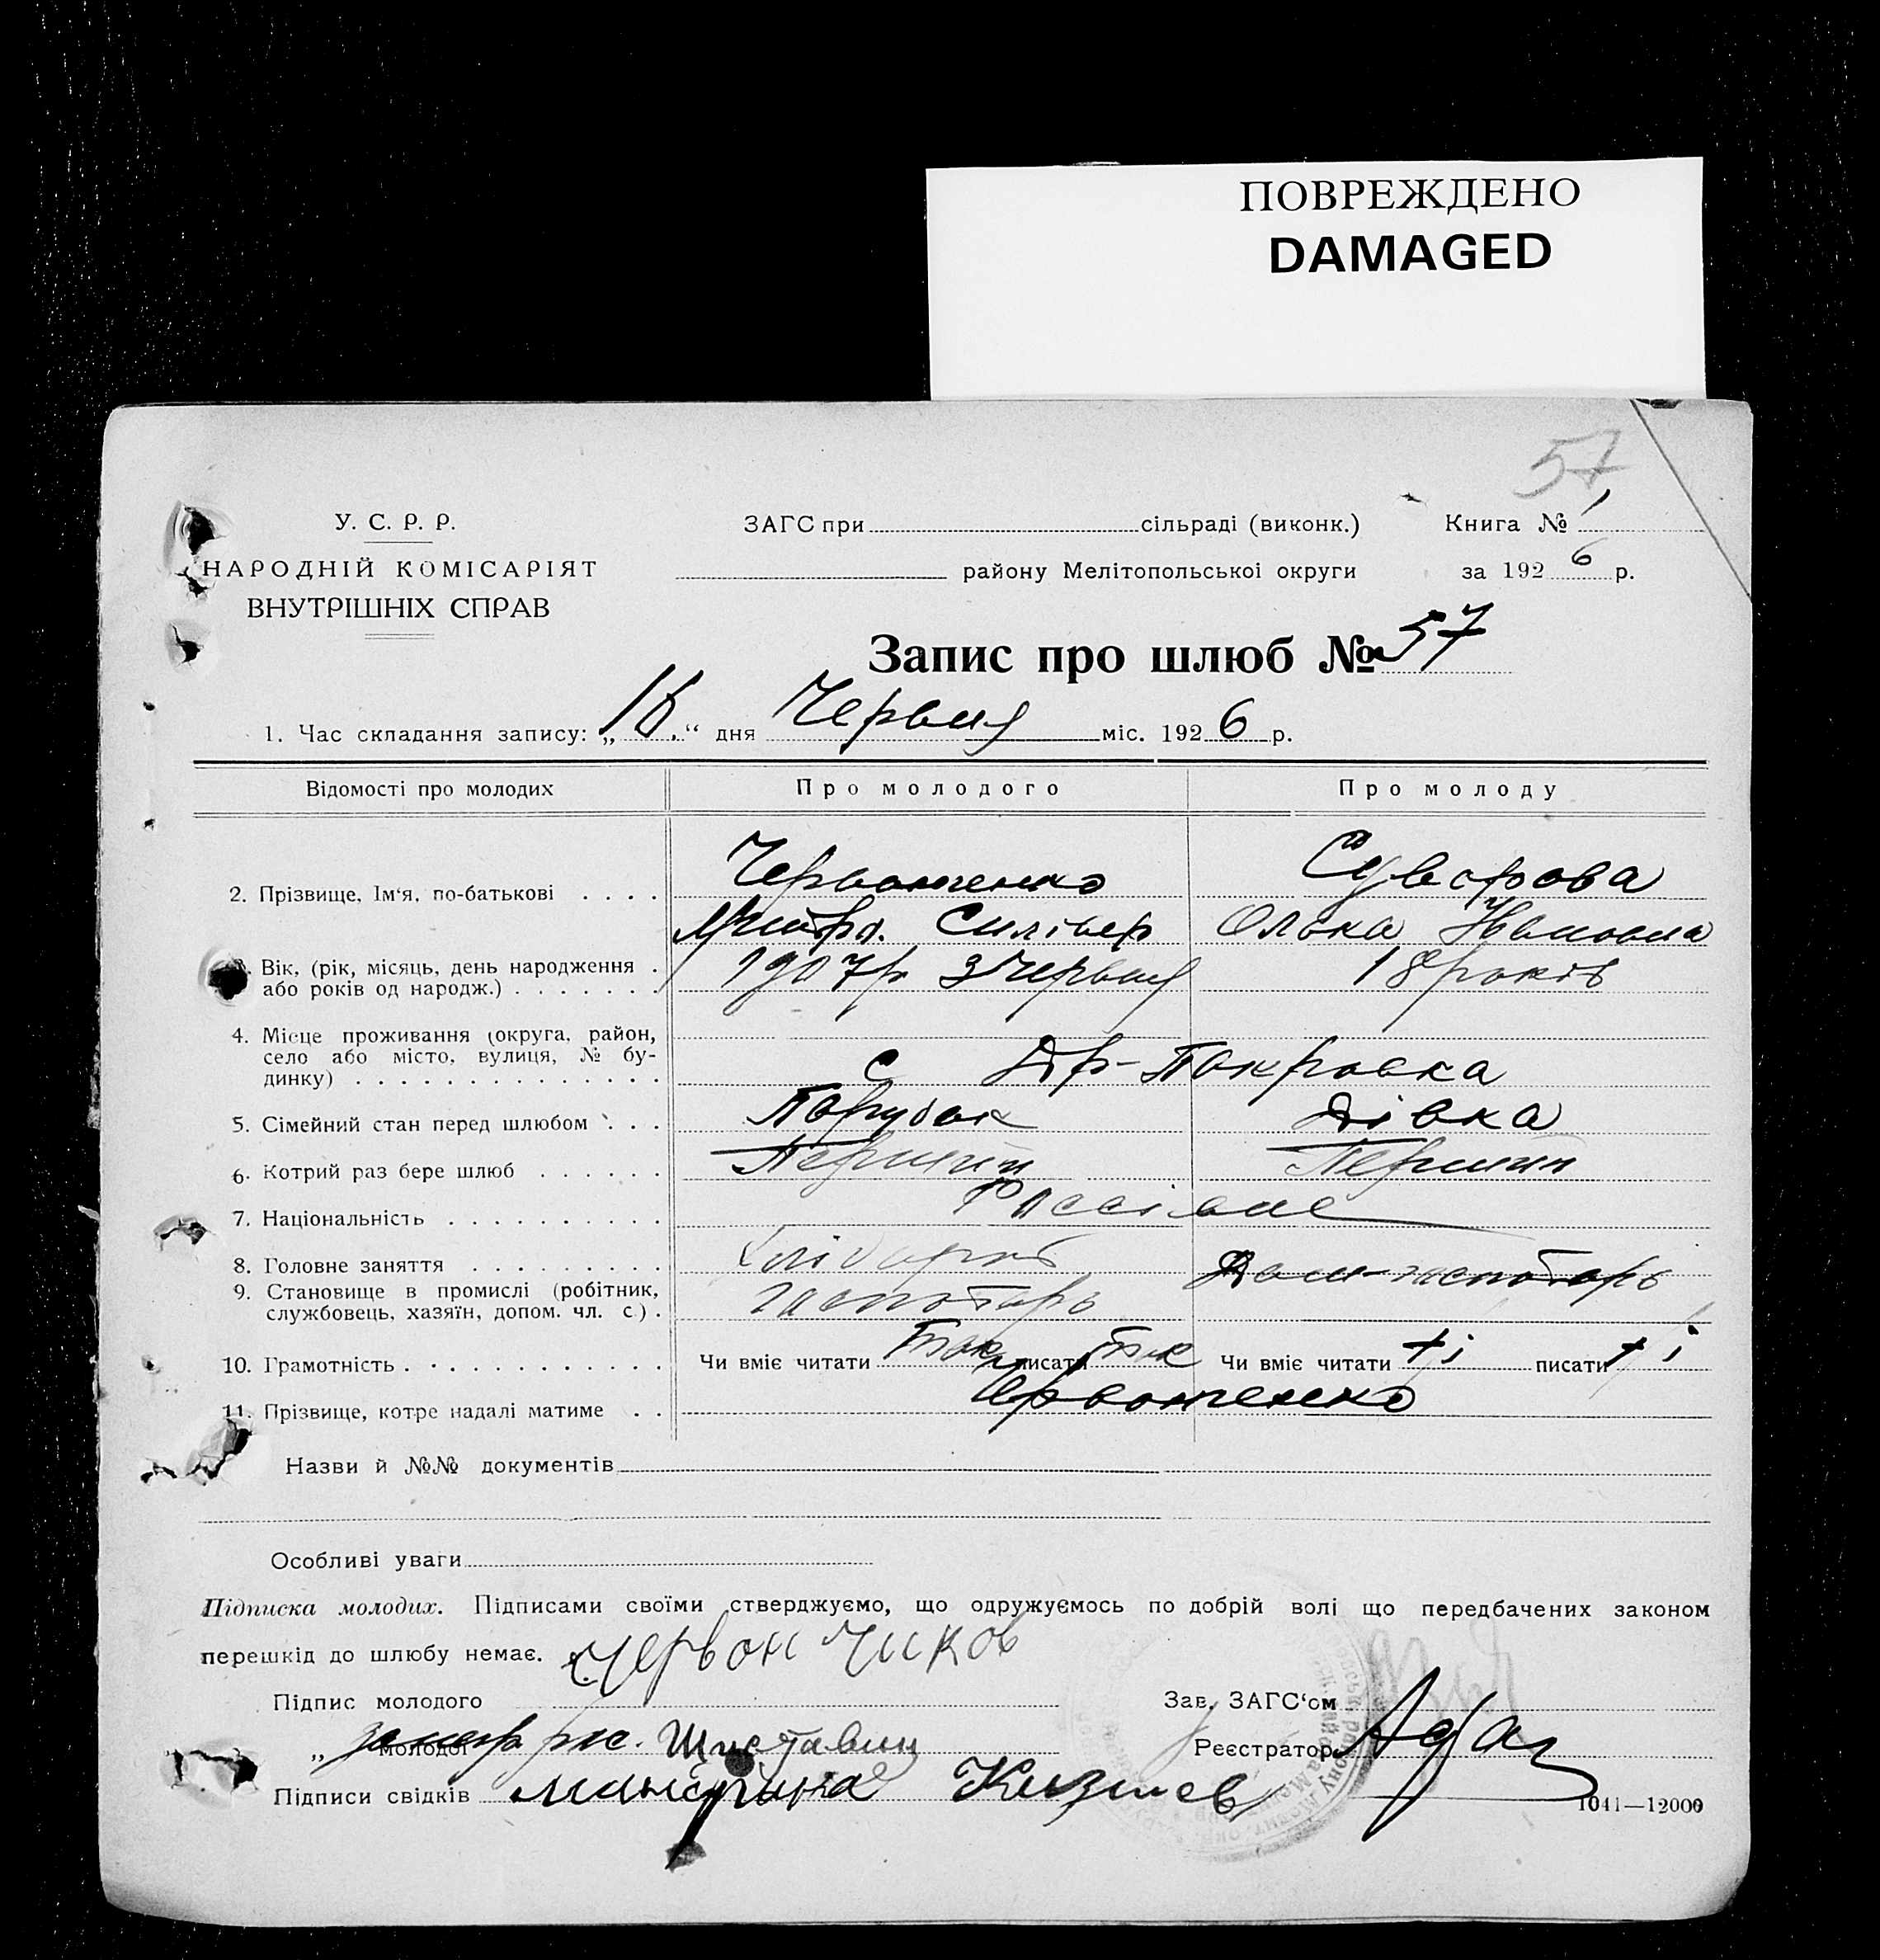 ПОВРЕЖДЕНО
DAMAGED
57
У. С. Р. Р.
НАРОДНІЙ КОМІСАРІЯТ
ВНУТРІШНІХ СПРАВ
ЗАГС при сільраді (виконк.)
району Мелітопольської округи
Книга № 1
за 1926 р.
Запис про шлюб № 57
1. Час складання запису: „16.“ дня Червня міс. 1926 р.
Відомості про молодих Про молодого Про молоду
2. Прізвище, Ім‘я, по-батькові . . . . Червонченко Суворова
Силівер Ольга Ивановна
3. Вік, (рік, місяць, день народження . 1907р 3 Червня 18 років
або років од народж.) . . . . . . .
4. Місце проживання (округа, район,
село або місто, вулиця, № бу-
динку) . . . . . . . . . . . . . . с Покровка
5. Сімейний стан перед шлюбом . . . Парубок Дівка
6. Котрий раз бере шлюб . . . . . . Перший Перший
7. Національність . . . . . . . . . . Россіяне
8. Головне заняття . . . . . . . . . Хлібороб
9. Становище в промислі (робітник,
службовець, хазяїн, допом. чл. с.) . господарь
10. Грамотність . . . . . . . . . . . . Чи вміє читати так писати так Чи вміє читати ні писати ні
11. Прізвище, котре надалі матиме . . Червонченко
Назви й №№ документів
Особливі уваги
Підписка молодих. Підписами своїми стверджуємо, що одружуємось по добрій волі що передбачених законом
перешкід до шлюбу немає. Червон чиков
Підпис молодого Зав. ЗАГС‘ом
„ молодої Реєстратор
Підписи свідків
1041—12000